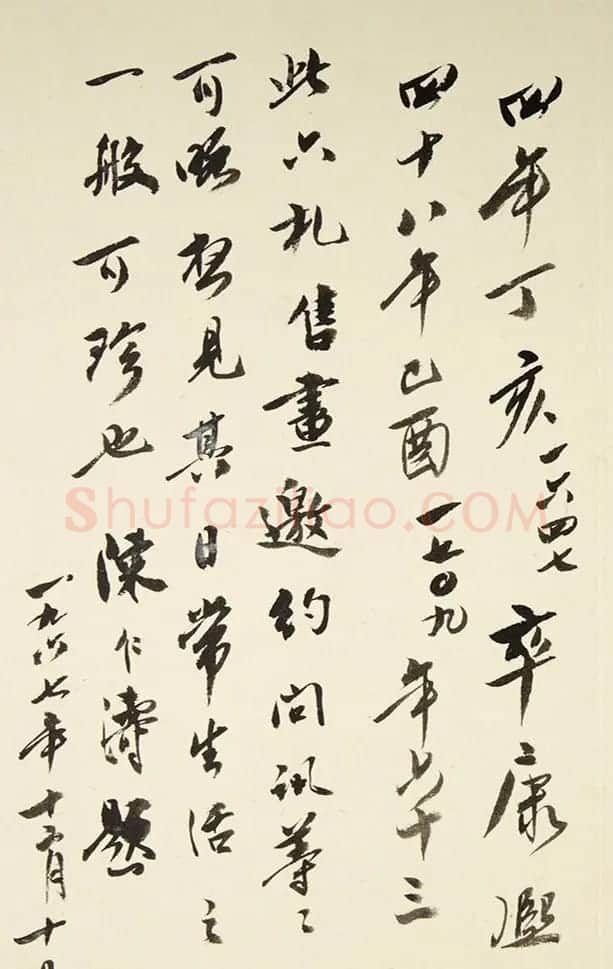 四年丁亥一六四七卒康熙
四十八年己酉一七〇九年七十三
此六札售畫邀約問訊等等
可略想見其日常生活之
一般可珍也 陳仁濤題
一九六七年十二月十
Shufaziliao.COM